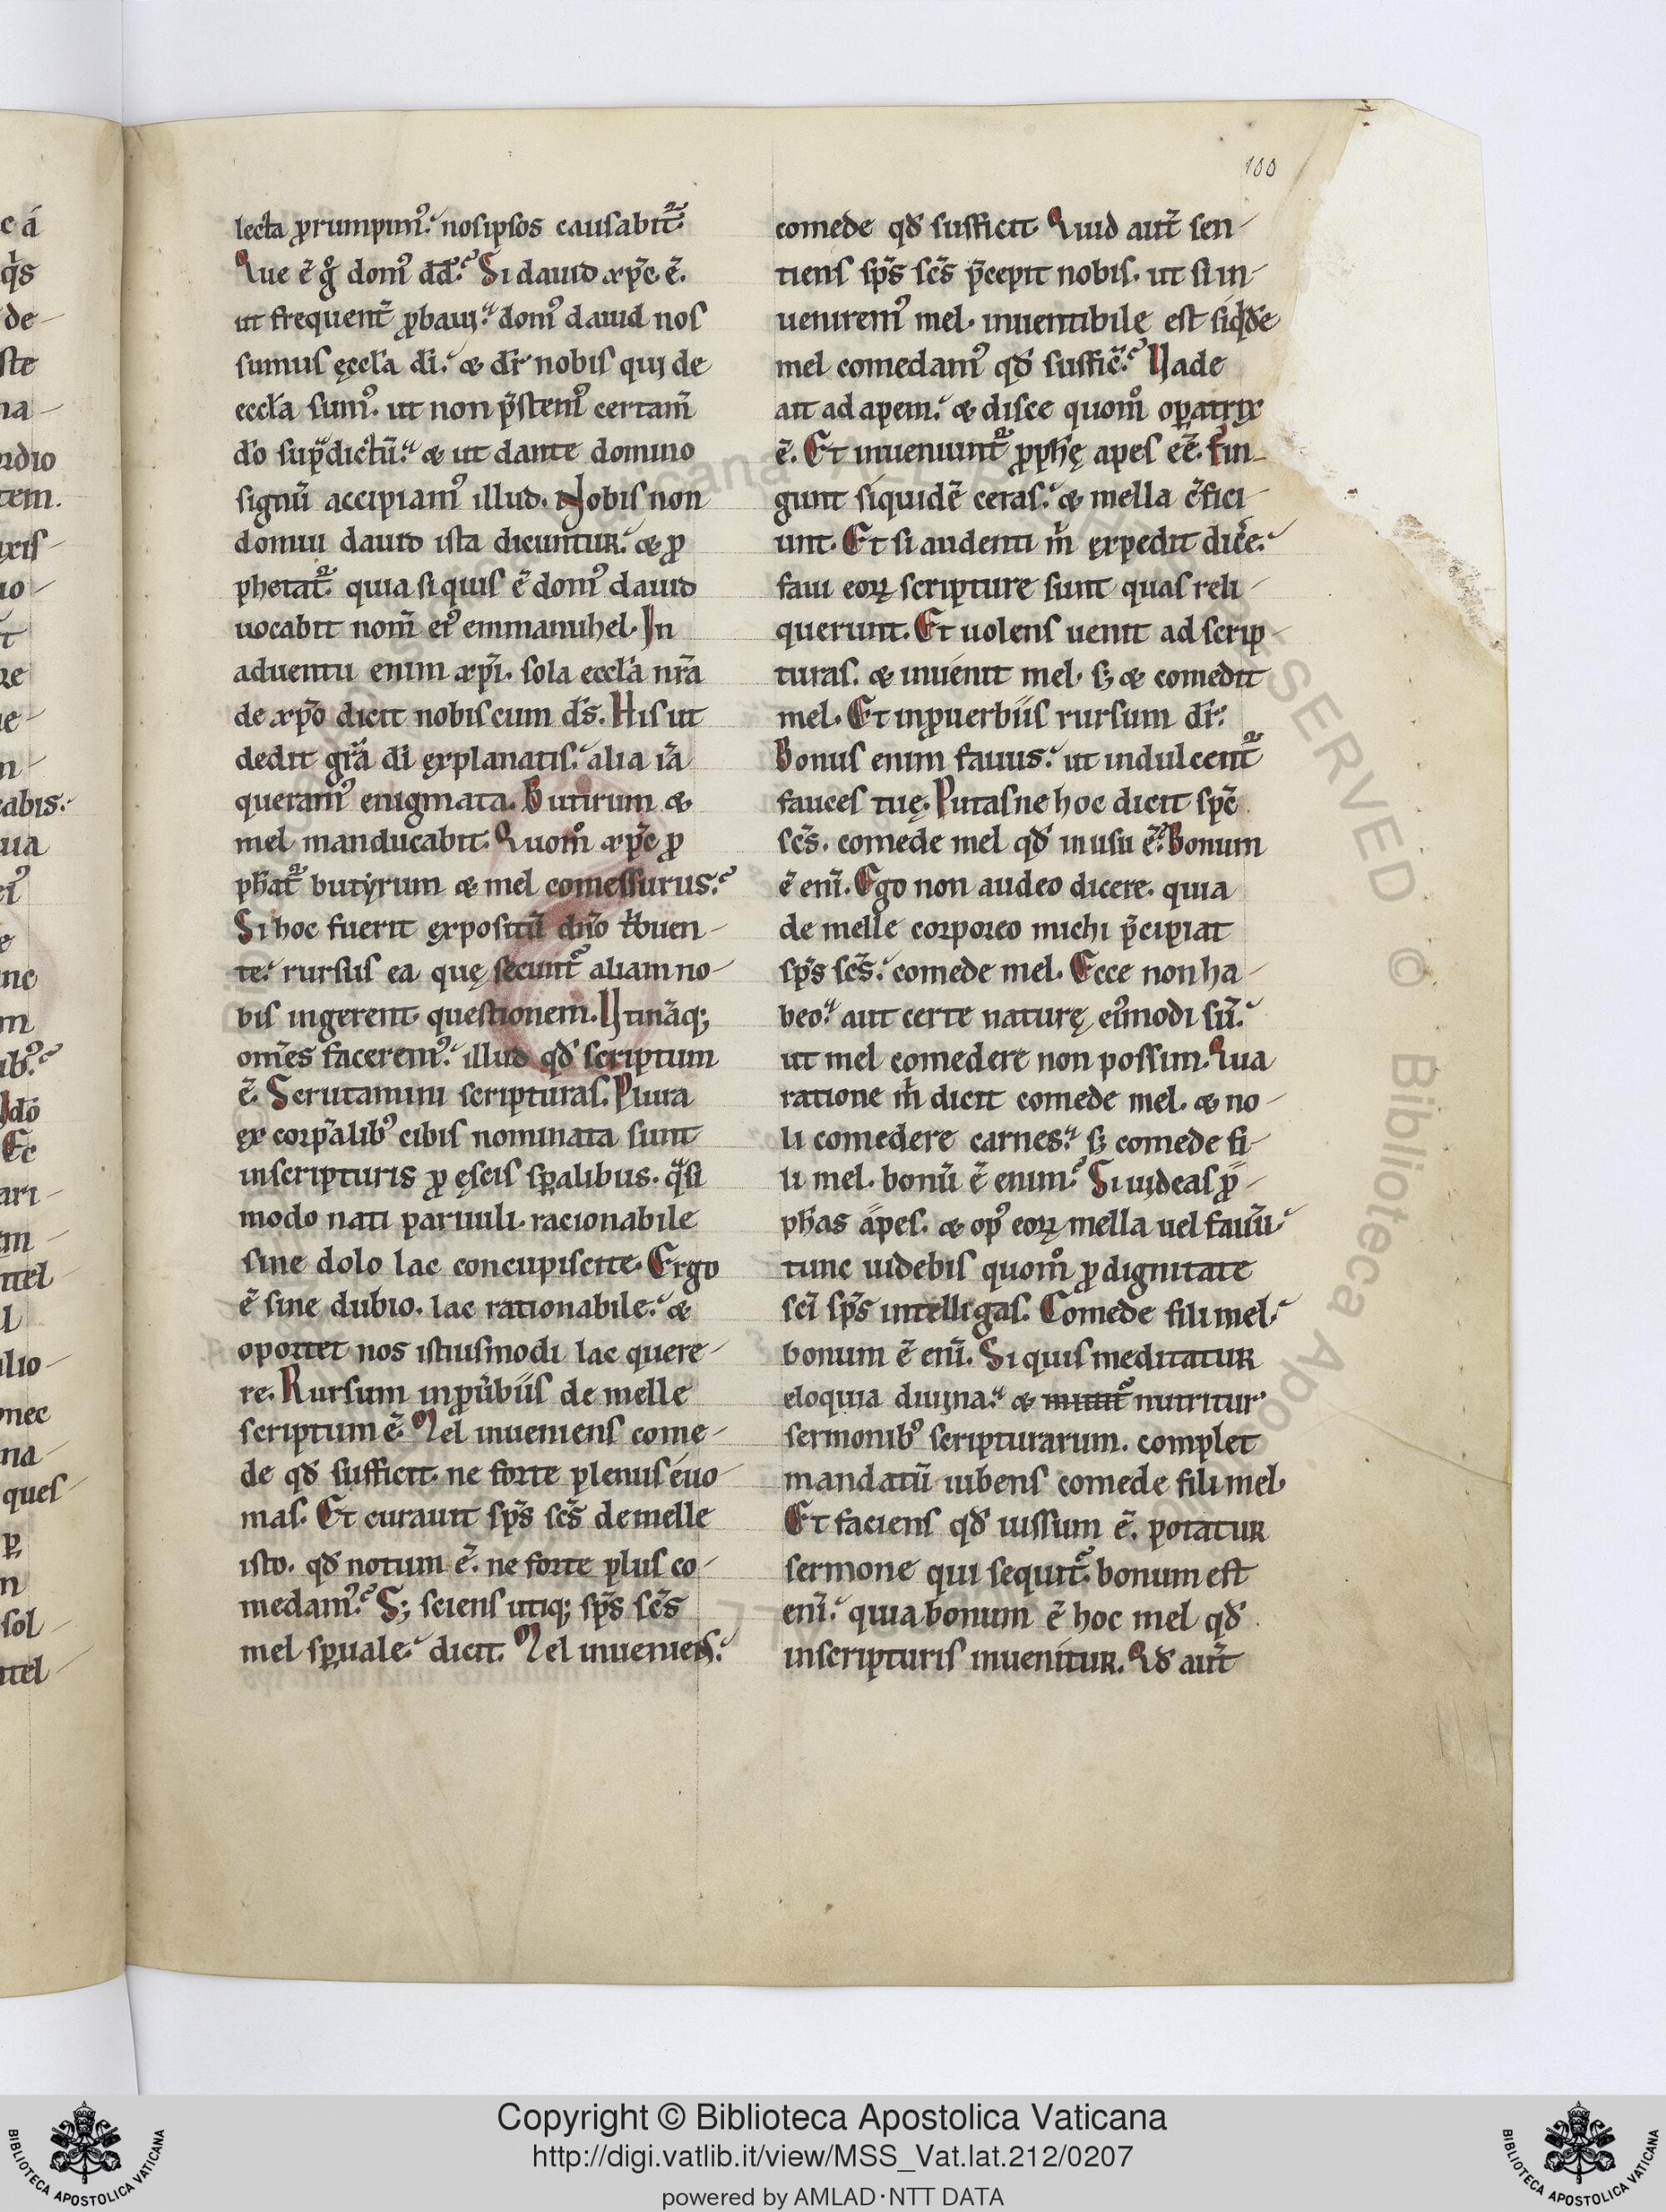 100
lecta ꝓrumpimꝰ. nosipsos causabit᷑.
Que ē gͦ domꝰ dd̄. Si dauid xp̄c ē.
ut frequent̄ ꝓbaui. domꝰ dauid nos
sumus ęccl̄a dī. & dr̄ nobis qui de
eccl̄a sumꝰ. ut non p̄stemꝰ certam̄
dō sup̄dictū. & ut dante domino
signū accipiamꝰ illud. Nobis non
domui dauid ista dicuntur. & ꝓ
phetat᷑. quia si quis ē domꝰ dauid
uocabit nom̄ eiꝰ emmanuhel. In
aduentu enim xp̄i. sola eccl̄a nr̄a
de xp̄o dicit nobiscum ds̄. His ut
dedit gr̄a dī explanatis. alia iā
queramꝰ enigmata. Butirum &
mel manducabit. Quomͦ xp̄c ꝓ
ph̄at᷑ butyrum & mel comessurus.
Si hoc fuerit expositū dn̄o tͥbuen-
te. rursus ea quę secunt᷑ aliam no-
bis ingerent questionem. Utinā q;
om̄es faceremꝰ. illud qđ scriptum
ē. Scrutamini scripturas. Plura
ex corp̄alibꝰ cibis nominata sunt
inscripturis ꝓ ęscis sp̄alibus. qͣsi
modo nati paruuli. racionabile
sine dolo lac concupiscite. Ergo
ē sine dubio. lac rationabile. &
oportet nos istiusmodi lac quere-
re. Rursum inpͮbiis de melle
scriptum ē. Mel inueniens come-
de qđ sufficit. ne forte plenus euo-
mas. Et curauit sp̄s sc̄s de melle
isto. qđ notum ē. ne forte plus co-
medamꝰ. S; sciens utiq; sp̄s sc̄s
mel sp̄uale. dicit. Mel inueniens.
comede qđ sufficit. Quid aut̄ sen-
tiens sp̄s sc̄s p̄cepit nobis. ut si in-
ueniremꝰ mel. inuentibile est siqͥđe
mel comedamꝰ qđ suffic̄. Uade
ait ad apem. & disce quomͦ oꝑatrix
ē. Et inueniunt᷑ ꝓph̄ę apes eē. fin-
gunt siquidē ceras. & mella ɔ̄fici-
unt. Et si audenti mͥ expedit dicͤe.
faui eoꝝ scripture sunt quas reli-
querunt. Et uolens uenit ad scrip-
turas. & inuenit mel. sꝫ & comedit
mel. Et inꝓuerbiis rursum dr̄.
Bonus enim fauus. ut indulcent᷑
fauces tuę. Putasne hoc dicit sp̄c
sc̄s. comede mel qđ in usu ē. Bonum
ē enī. Ego non audeo dicere. quia
de melle corporeo michi p̄cipiat
sp̄s sc̄s. comede mel. Ecce non ha-
beo. aut certe naturę eiꝰmodi sū.
ut mel comedere non possim. Qua
ratione mͥ dicit comede mel. & no-
li comedere carnes. sꝫ comede fi-
li mel. bonū ē enim. Si uideas ꝓ-
ph̄as apes. & opꝰ eoꝝ mella uel fauū.
tunc uidebis quomͦ ꝓ dignitate
sc̄i sp̄s intelligas. Comede fili mel.
bonum ē enī. Si quis meditatur
eloquia diuina. & nutritur
sermonibꝰ scripturarum. complet
mandatū iubens comede fili mel.
Et faciens qđ iussum ē. potatur
sermone qui sequit᷑. bonum est
enī. quia bonum ē hoc mel qđ
inscripturis inuenitur. Qđ aut̄
Copyright © Biblioteca Apostolica Vaticana
http://digi.vatlib.it/view/MSS_Vat.lat.212/0207
powered by AMLAD·NTT DATA
BIBLIOTECA APOSTOLICA VATICANA
BIBLIOTECA APOSTOLICA VATICANA